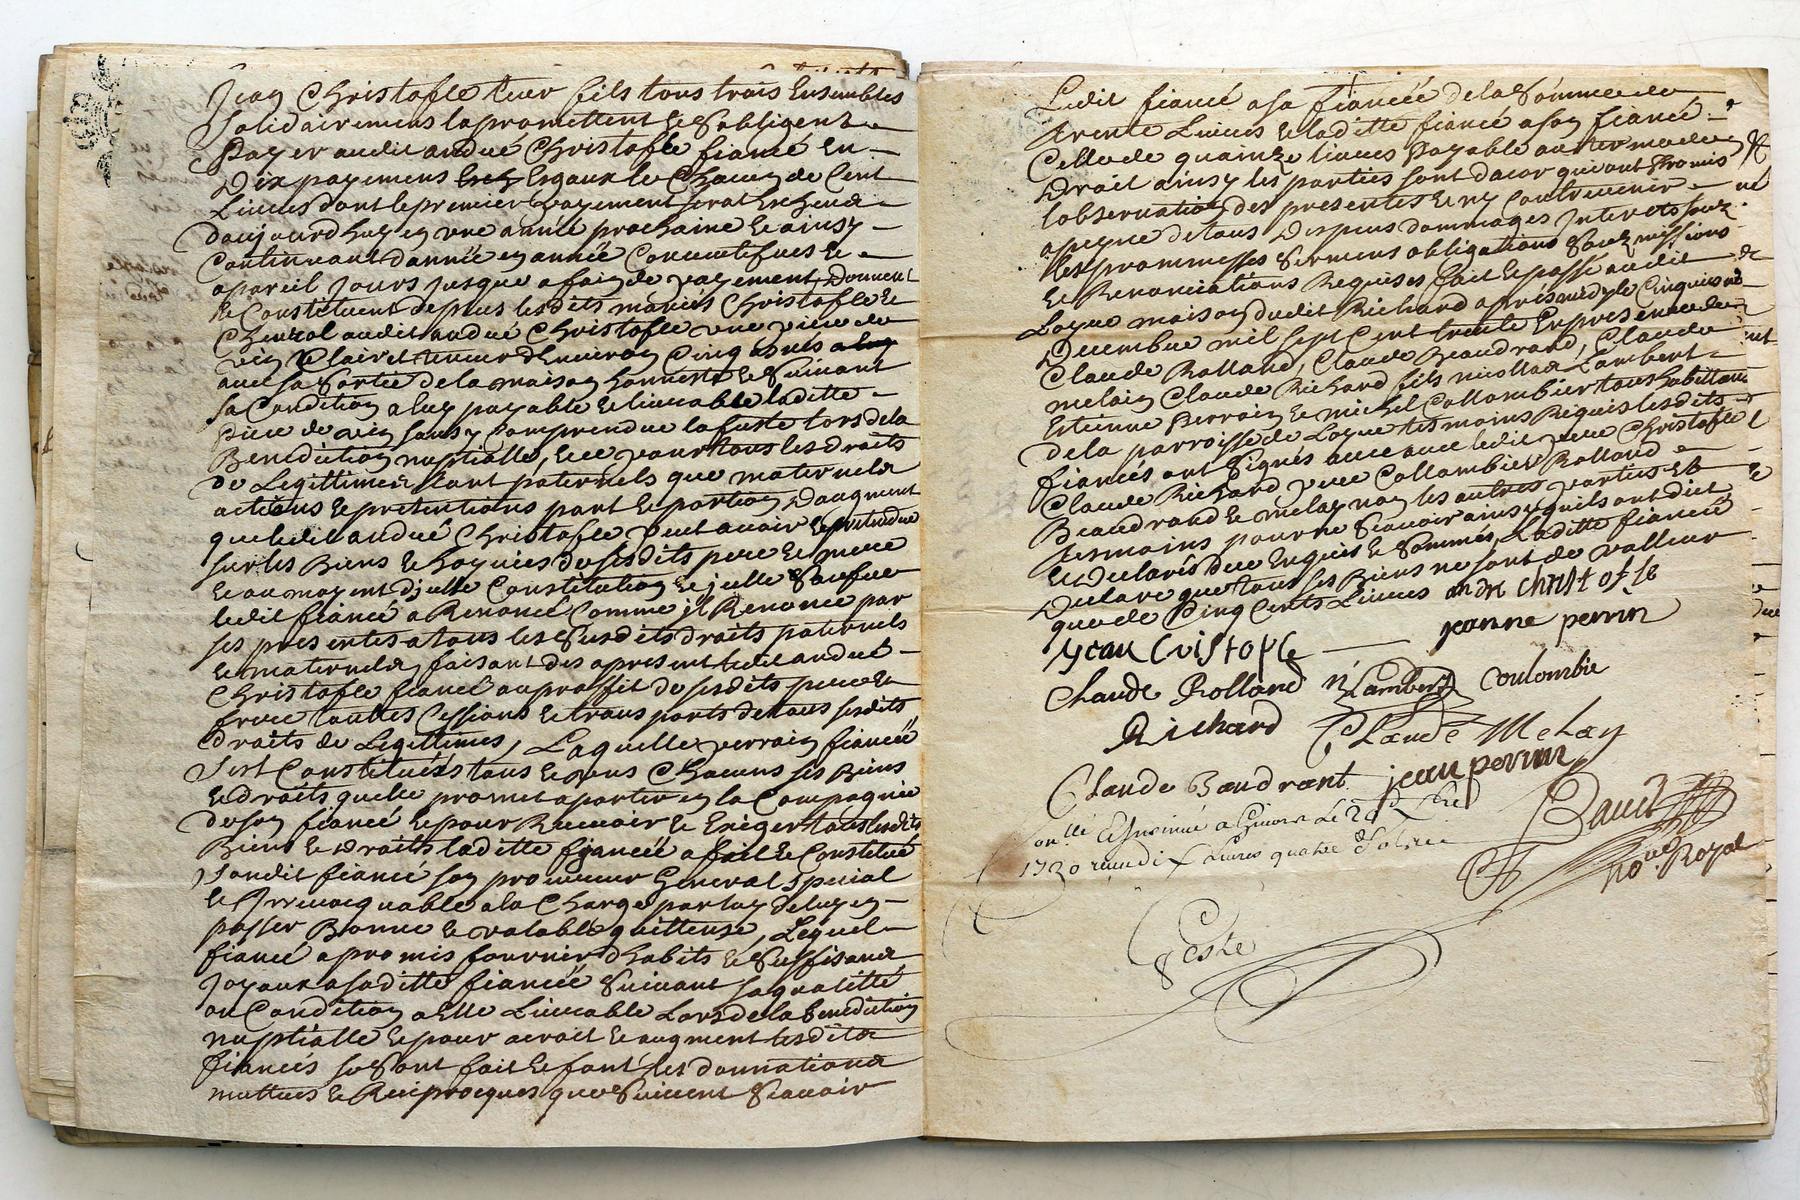 Jean Christofle leur fils tous trois Ensembles
Solidairement la promettent et Sobligent
Payer audit andré Christofle fiancé En
Dix payemens Esgaux de Chacun de Cent
Livres dont le premier payement serat Escheu
daujourdhuy en une année prochaine et ainsy
Continuant dannée en année Concecutefves et
apareil Jours jusque a fain de payement, Donnent
et Constituent de plus lesdits mariés Christofle et
audit andré Christofle une piece de
vin Clairet teneur denviron Cinq asnés
avec sa Sortie de la maison honneste et Suivant
sa Condition a luy payable et livrable laditte
piece de vin sans y Comprendre la fuste lors de la
Benediction nuptialle, et ce pour tous les droits
de Legittimes tant paternels que maternels
actions et pretentions part et portion Daugment
que ledit andré Christofle peut avoir et pretendre
sur les Biens et hoyries de sesdits pere et mere
et au moyent djcelle Constitution et jcelle Saufve
ledit fiancé a Renoncé Comme jl Renonce par
ses presentes a tous les Susdits droits paternels
et maternels faisant des apresent ledit andré
Christofle fiancé au proffit de sesdits pere et
frere touttes Cessions et transports de tous sesdits
droits de Legittimes, Laquelle perrain fiancée
Sest Constituées tous et uns Chacuns ses Biens
et droits quelle promet aporter en la Compagnie
de son fiancé et pour Recevoir et Exiger tous lesdits
Biens et droits laditte fiancée a fait et Constitué
sondit fiancé son procureur General special
et Irrevocquable a la Charge par luy de luy en
passer Bonne et valable quittense, Lequel
fiancé a promis fournir dhabits et Suffisans
Joyaux a saditte fiancée Suivant sa qualitté
ou Condition a Elle Livrable Lors de la benediction
nuptialle et pour acroit et augment lesdits
fiancés se Sont fait et font les donnations
mattues et Reciprocques que Suivent Scavoir
Ledit fiancé a sa fiancée de la Somme de
trente Livres et laditte fiancé a son fiancé
Celle de quainze livres payable au termede
Droit ainsy les parties sont dacor qui ont Promis
lobservation des presentes et ny Contrevenir
apeyne de tous Despens dommages Interets sous
les prommesses Sermens obligations Soubzmissions
et Renonciations Requises fait et passé audit
Loyre maison dudit Richard aprés medy le Cinquieme
Decembre mil sept Cent trente En presence de
Claude Rolland, Claude Beaudrand, Claude
melain Claude Richard fils nicollas Lambert
Estienne Perrain et michel Collombier tous habittans
de la parroisse de Loyre tesmoins Requis lesdits
fiancés ont Signés avec avec ledit pere Christofle
Claude Richard avec Collombier Rolland
Beaudrand et melay non les autres parties et
tesmoins pour ne Scavoir ainsy quils ont dict
et declarés deue Enquis et Sommés, Laditte fiancée
Declare que tous ses Biens ne sont de valleur
que de Cinq Cents Livres andre christofle
jean Cristofle jeanne perrin
Claude Rolland n Lambert Coulombie
Richard Claude Melay
Claude Baudrant jean perrin
Con.llé et Insinué a Givors Le 20 Xbre
1730 receu dix Livres quatre Sols
No.re Royal